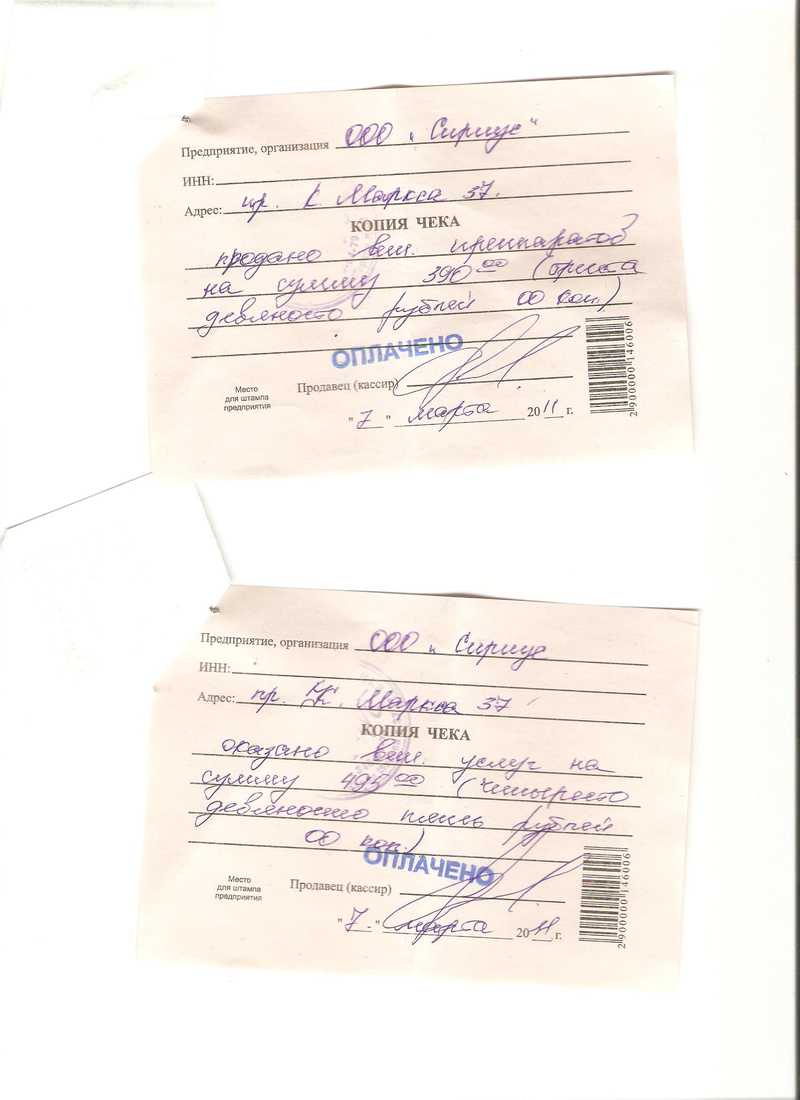 Предприятие, организация ООО „Сириус"
ИНН:
Адрес: пр. К. Маркса 37.
КОПИЯ ЧЕКА
продано вет. препаратов
на сумму 390 00 (триста
девяносто рублей 00 коп.)
ОПЛАЧЕНО
Место
для штампа
предприятия
Продавец (кассир)
"7" марта 2011 г.
2 900000 146006
Предприятие, организация ООО „Сириус
ИНН:
Адрес: пр. К. Маркса 37
КОПИЯ ЧЕКА
оказано вет. услуг на
сумму 495 00 (четыресто
девяносто пять рублей
00 коп.)
ОПЛАЧЕНО
Место
для штампа
предприятия
Продавец (кассир)
"7." марта 2011 г.
2 900000 146006